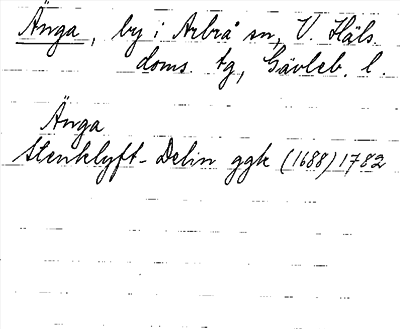 Änga, by i Arbrå sn, V. Häls.
doms. tg, Gävleb. l.
Änga
Stenklyft-Delin ggk (1688) 1782